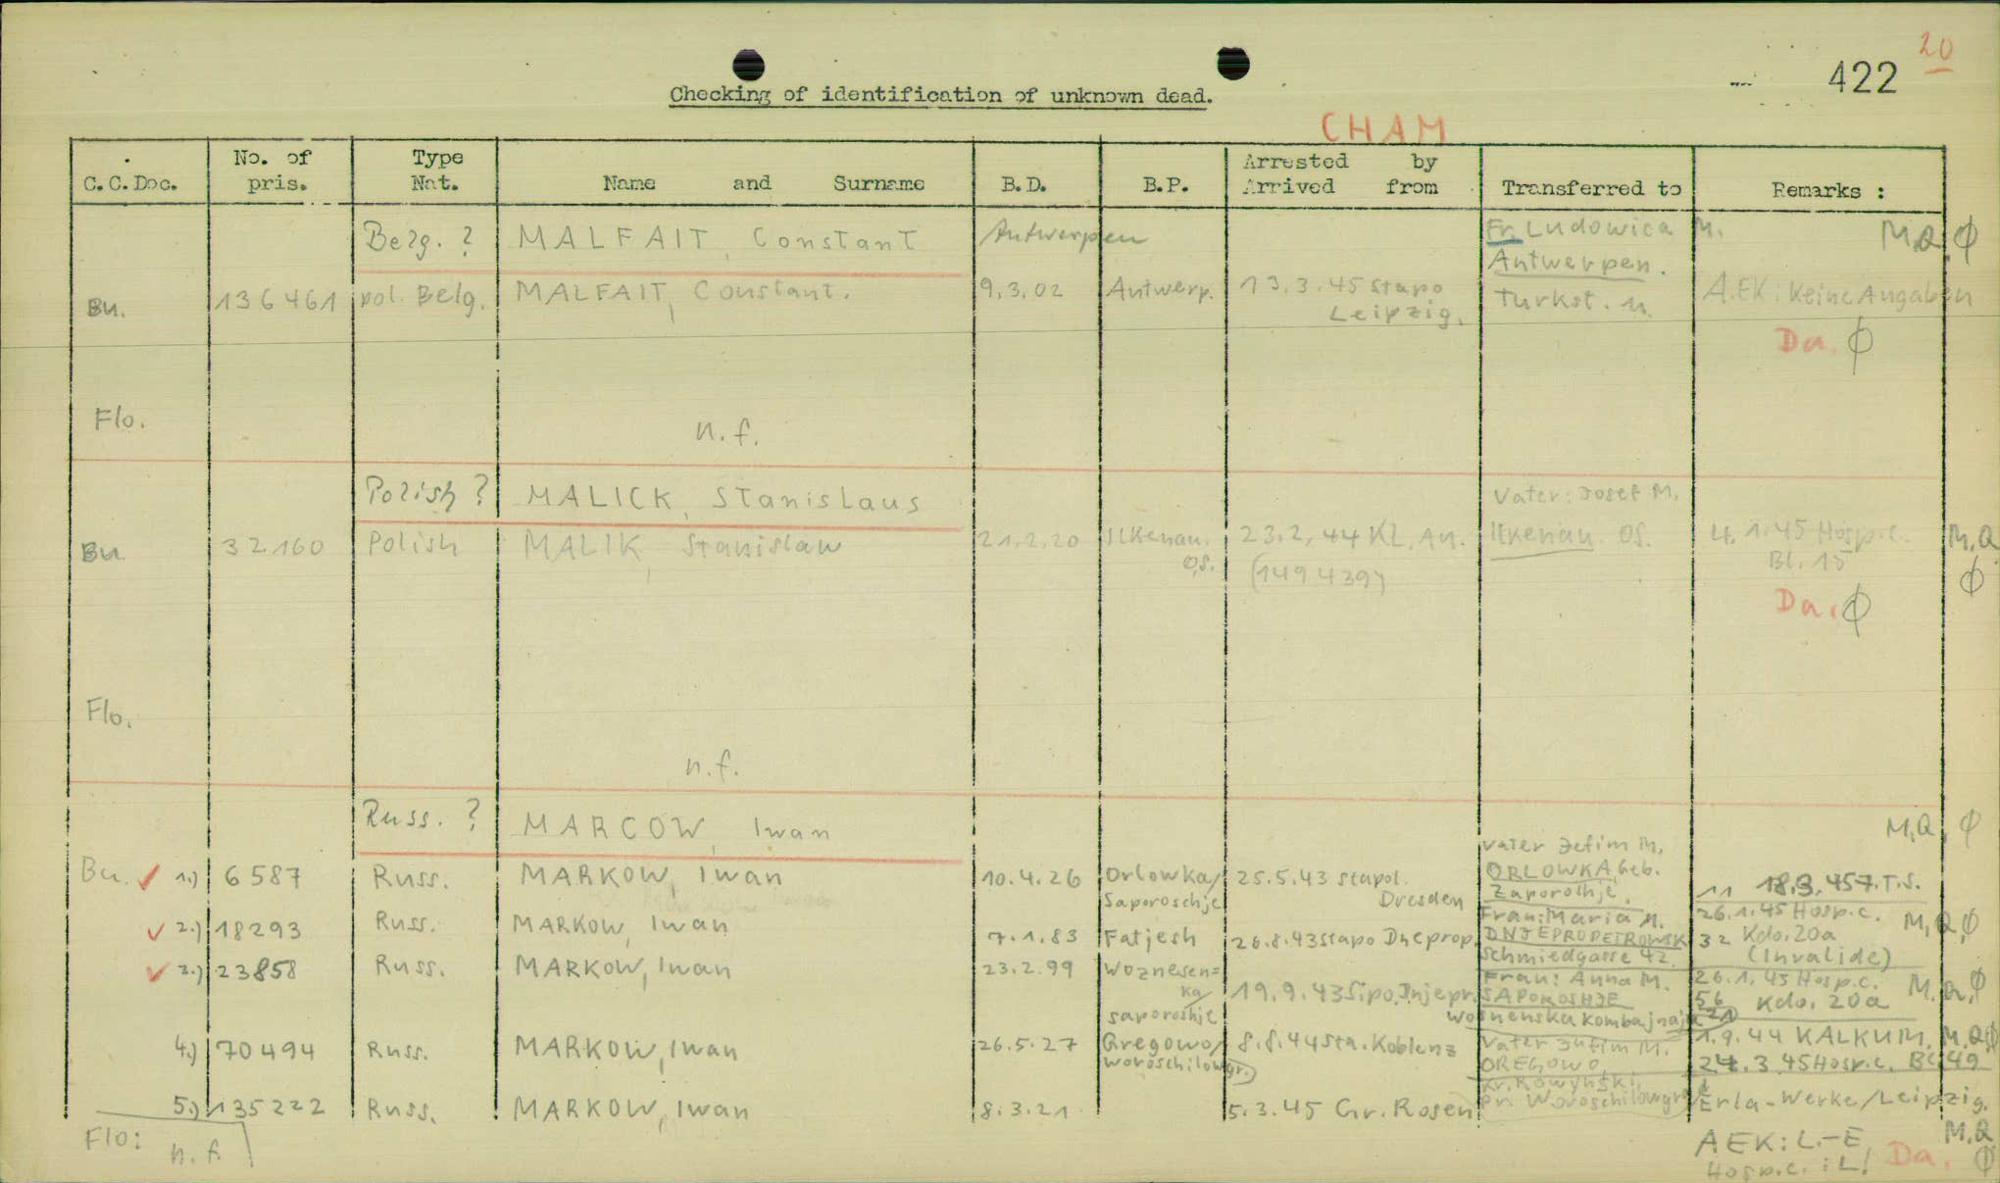 20
422
Checking of identification of unknown dead.
CHAM
C.C.Doc. No. of pris. Type Nat. Name and Surname B.D. B.P. Arrested by Arrived from Transferred to Remarks :
Belg. ? MALFAIT, Constant Antwerpen Fr. Ludowica M. M,Q,ϕ
Antwerpen.
Bu. 136461 pol. Belg. MALFAIT, Constant. 9.3.02 Antwerp. 13.3.45 Stapo Turkst. A.EK: Keine Angaben
Leipzig.
Da. ϕ
Flo. n.f.
Polish ? MALICK, Stanislaus Vater: Josef M.
Bu. 32160 Polish MALIK, Stanislaw 21.2.20 Ilkenau. 23.2.44 KL. Au. Ilkenau OS. 4.1.45 Hosp.c. M,Q
O,S. (149439) Bl. 15 ϕ
Da. ϕ
Flo.
n.f.
Russ. ? MARCOW, Iwan M,Q, ϕ
Vater Jefim M.
Bu. 1.) 6587 Russ. MARKOW, Iwan 10.4.26 Orlowka/ 25.5.43 Stapol. ORLOWKA, Geb.
Saporoschje Dresden
26.1.45 Hosp.c. M,Q,ϕ
2.) 18293 Russ. MARKOW, Iwan 7.1.83 Fatjesh 26.8.43 Stapo Dneprop. Frau: Maria M. DNJEPROPETROWSK 32 Kdo. 20a
Schmiedgasse 42. (Invalide)
3.) 23858 Russ. MARKOW, Iwan 23.2.99 Woznesen= Frau: Anna M. 26.1.45 Hosp.c. M,Q,ϕ
ka/ 19.9.43 Sipo. SAPOROSHJE 56 Kdo. 20a
saporoshje
4.) 70494 Russ. MARKOW, Iwan 26.5.27 Gregowo/ 8.8.44 Sta. Koblenz Vater M. 1.9.44 KALKUM, M,Q,ϕ
OREGOWO 24.3.45 Hosp.c. Bl. 49
5.) 135222 Russ. MARKOW, Iwan 8.3.21 5.3.45 Gr. Rosen Erla-Werke/Leipzig.
Flo: n.f. AEK: L.-E M.Q
Hosp.c. : L! Da. ϕ